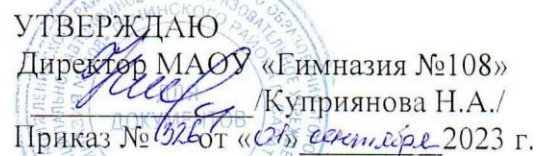 УТВЕРЖДАЮ
Директор МАОУ «Гимназия №108»
/Куприянова Н.А./
Приказ № 326 от «01» сентября 2023 г.